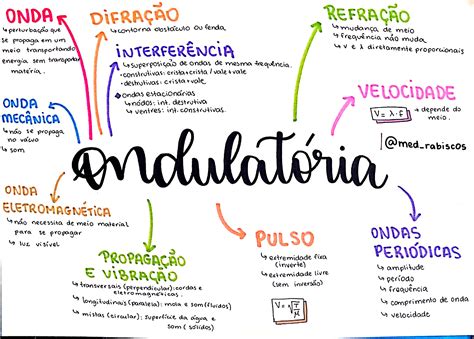 ONDA
↳ perturbação que
se propaga em um
meio transportando
energia sem transportar
matéria.
DIFRAÇÃO
↳ contorna obstáculo ou fenda.
INTERFERÊNCIA
↳ superposição de ondas de mesma frequência.
• construtivas: crista + crista / vale + vale
• destrutivas: crista + vale
ondas estacionárias
↳ nódos: int. destrutiva
↳ ventres: int. construtivas.
REFRAÇÃO
↳ mudança de meio
↳ frequência não muda
↳ v e λ diretamente proporcionais
VELOCIDADE
V = λ . f
→ depende do
meio.
@med_rabiscos
ONDA
MECÂNICA
↳ não se propaga
no vácuo
↳ som
Ondulatória
ONDA
ELETROMAGNÉTICA
↳ não necessita de meio material
para se propagar
↳ luz visível
PROPAGAÇÃO
E VIBRAÇÃO
↳ transversais (perpendicular): cordas e
eletromagnéticas.
↳ longitudinais (paralela): mola e som (fluidos)
↳ mistas (circular): superfície da água e
som (sólidos)
PULSO
↳ extremidade fixa
(inverte)
↳ extremidade livre
(sem inversão)
V = √T/μ
ONDAS
PERIÓDICAS
↳ amplitude
↳ período
↳ frequência
↳ comprimento de onda
↳ velocidade